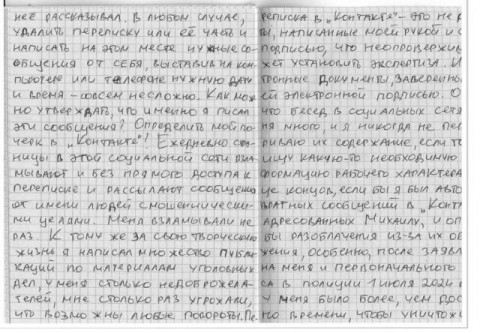 неё рассказывал. В любом случае,
удалить переписку или её часть и
написать на этом месте нужные со-
общения от себя, выставив на ком-
пьютере или телефоне нужную дату
и время – совсем несложно. Как мож-
но утверждать, что именно я писал
эти сообщения? Определить мой по-
черк в „Контакте"? Ежедневно стра-
ницы в этой социальной сети взла-
мывают и без прямого доступа к
переписке и рассылают сообщения
от имени людей с мошенически-
ми целями. Меня взламывали не
раз. К тому же за свою творческую
жизнь я написал множество публи-
каций по материалам уголовных
дел, у меня столько недоброжела-
телей, мне столько раз угрожали,
что возможны любые повороты. Пе-
реписка в „Контакте" – это не
ты, написанные моей рукой и с
подписью, что неопровержи
жет установить экспертиза. И
тронные документы, заверенны
ей электронной подписью.
что бесед в социальных сетя
ня много, и я никогда не пе
риваю их содержание, если
ищу какую-то необходимую
формацию рабочего характера
це концов, если бы я был авто
вратных сообщений в „Конт
адресованных Михаилу, и оп
бы разоблачения из-за их об
жения, особенно, после заявл
на меня и первоначального
са в полиции 1 июля 2024
у меня было более, чем дос
но времени, чтобы уничтож